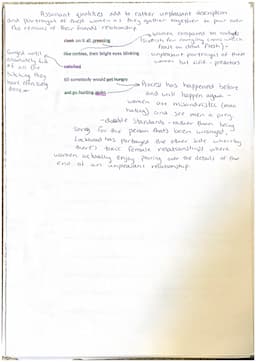 Assonant qualities add to rather unpleasant description
and portrayal of these women as they gather together to pour over
the remains of their friends relationship.
Gorged until
absolutely full
of all the
bitching they
have
feast on it all, pressing
like cortexs, their bright eyes blinking
satisfied
till somebody would get hungry
and go hunting again
Women compared to
feast on dead flesh) -
unpleasant portrayal of these
women but vivid - predators
Process has happened before
and will happen again -
women are misandristics (man
hating) and see men as prey
- double standards - rather than being
sorry for the person that's been wronged,
Lockhead has portrayed the other side whereby
there's toxic female relationships where
women actually enjoy pouring over the details of the
end of an unpleasant relationship.